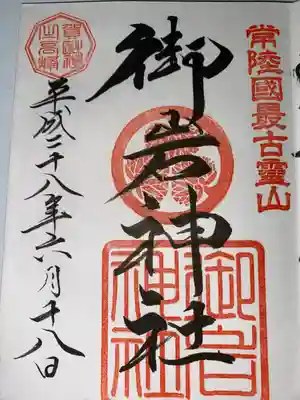 常陸國最古靈山
御岩神社
御岩神社
平成二十八年六月十八日